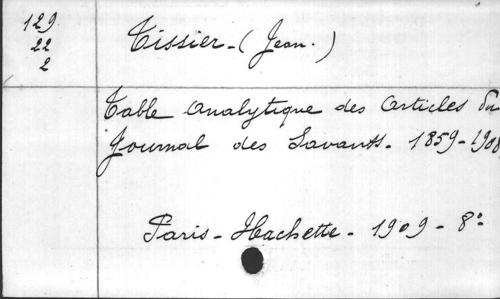 129
22
2
Tissier - (Jean.)
Table analytique des articles du
Journal des Savants. 1859-1908
Paris - Hachette - 1909 - 8°